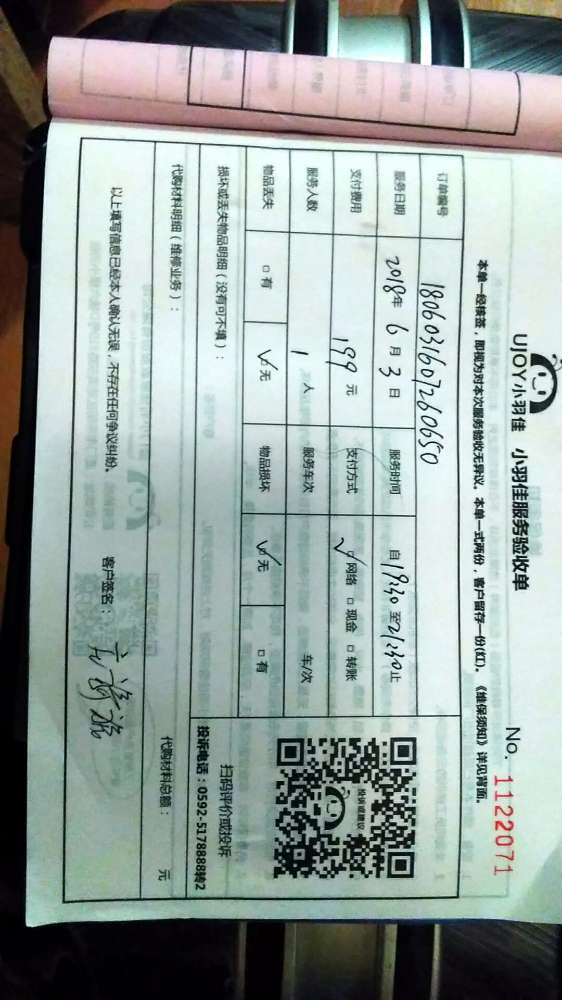 UJOY小羽佳 小羽佳服务验收单
No. 1122071
本单一经核签，即视为对本次服务验收无异议。本单一式两份，客户留存一份(红)。《维保须知》详见背面。
订单编号 1806031607260650
服务日期 2018年 6 月 3 日 服务时间 自 19:30 至 21:30 止
支付费用 199 元 支付方式 ☑网络 □现金 □转账
服务人数 1 人 服务车次 车/次
物品丢失 □有 ☑无 物品损坏 ☑无 □有
投诉或建议
扫码评价或投诉
投诉电话：0592-5178888转2
损坏或丢失物品明细（没有可不填）：
代购材料明细（维修业务）： 代购材料总额： 元
以上填写信息已经本人确认无误，不存在任何争议纠纷。 客户签名：